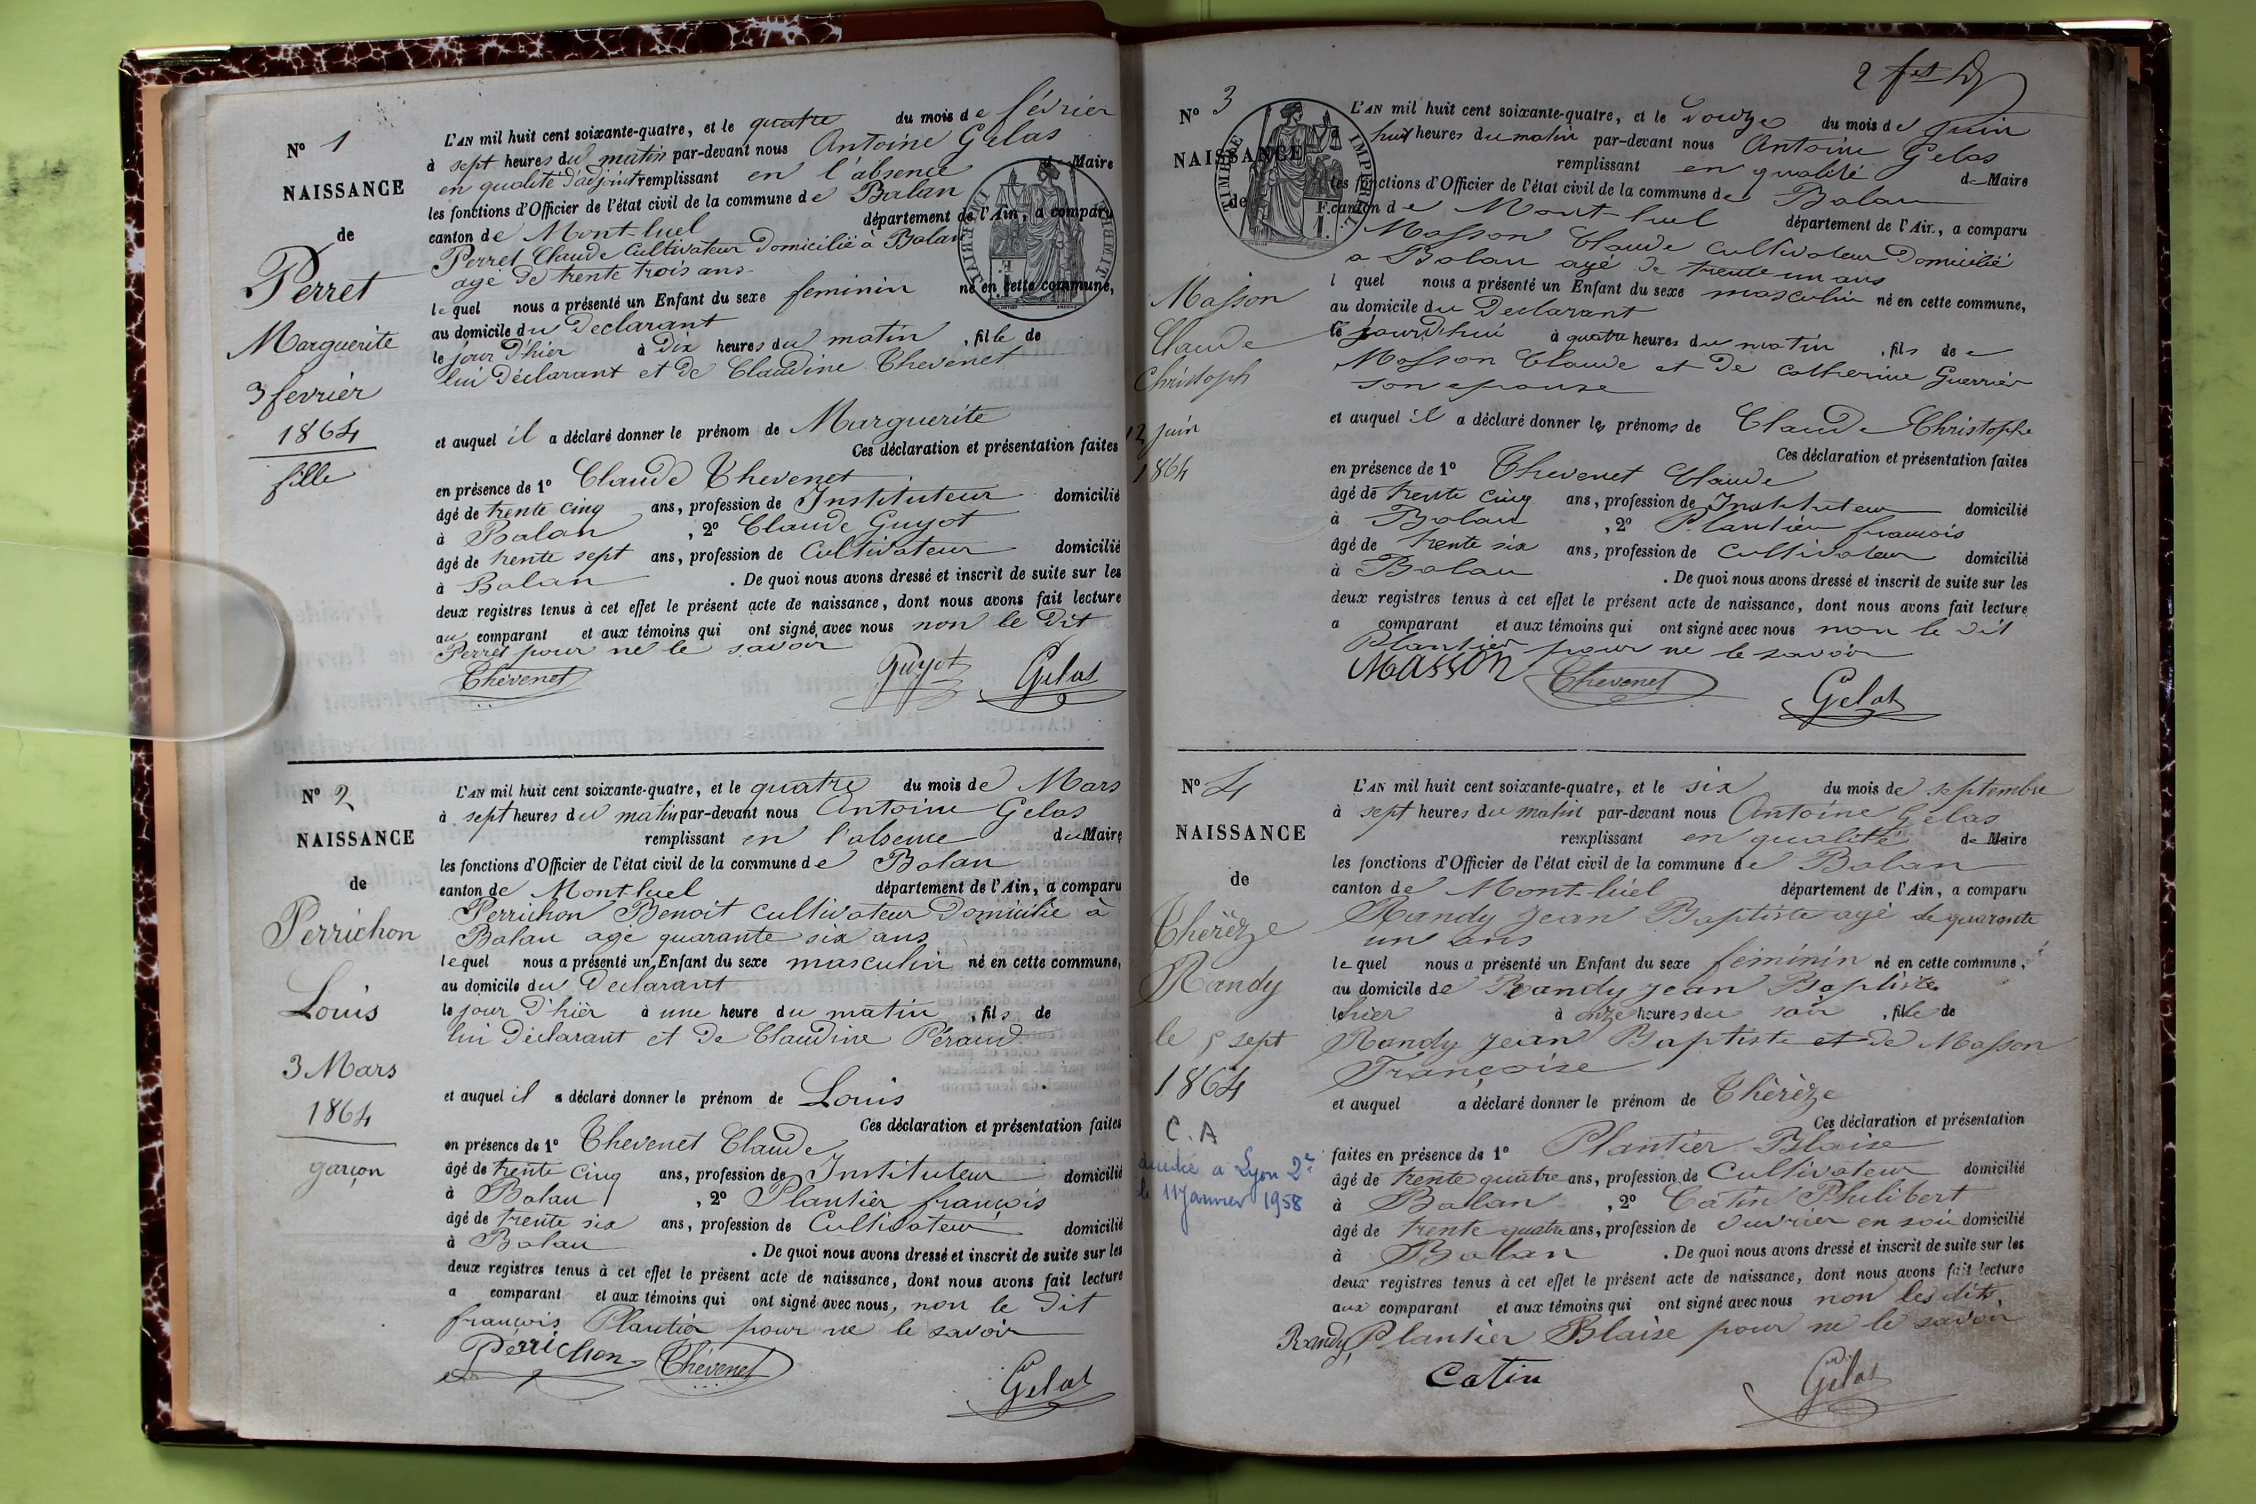 N° 1
NAISSANCE
de
Perret
Marguerite
3 fevrier
1864
fille
L'AN mil huit cent soixante-quatre, et le quatre du mois de février
à sept heures du matin par-devant nous Antoine Gelas
en qualité d'adjoint remplissant en l'absence de Maire
les fonctions d'Officier de l'état civil de la commune de Balan
canton de Mont-luel département de l'Ain, a comparu
Perret Claude Cultivateur Domicilié à Balan
agé de trente trois ans
lequel nous a présenté un Enfant du sexe feminin né en cette commune,
au domicile du Declarant
le jour d'hier à Dix heures du matin, fille de
lui Déclarant et de Claudine Thevenet
et auquel il a déclaré donner le prénom de Marguerite
Ces déclaration et présentation faites
en présence de 1° Claude Thevenet
âgé de trente cinq ans, profession de Instituteur domicilié
à Balan, 2° Claude Guyot
âgé de trente sept ans, profession de Cultivateur domicilié
à Balan. De quoi nous avons dressé et inscrit de suite sur les
deux registres tenus à cet effet le présent acte de naissance, dont nous avons fait lecture
au comparant et aux témoins qui ont signé avec nous non le Dit
Perret pour ne le savoir
Thévenet Guyot Gelas
N° 2
NAISSANCE
de
Perrichon
Louis
3 Mars
1864
garçon
L'AN mil huit cent soixante-quatre, et le quatre du mois de Mars
à sept heures du matin par-devant nous Antoine Gelas
remplissant en l'absence du Maire
les fonctions d'Officier de l'état civil de la commune de Balan
canton de Mont-luel département de l'Ain, a comparu
Perrichon Benoit cultivateur Domicilié à
Balan agé quarante six ans
lequel nous a présenté un Enfant du sexe masculin né en cette commune,
au domicile du Declarant
le jour D'hièr à une heure du matin, fils de
lui Déclarant et de Claudine Péraud
et auquel il a déclaré donner le prénom de Louis
Ces déclaration et présentation faites
en présence de 1° Thevenet Claude
âgé de trente cinq ans, profession de Instituteur domicilié
à Balan, 2° Plantier françois
âgé de trente six ans, profession de Cultivateur domicilié
à Balan. De quoi nous avons dressé et inscrit de suite sur les
deux registres tenus à cet effet le présent acte de naissance, dont nous avons fait lecture
a comparant et aux témoins qui ont signé avec nous, non le Dit
françois Plantier pour ne le savoir
Pérrichon Thévenet
Gelas
N° 3
NAISSANCE
de
Masson
Claude
Christoph
12 juin
1864
TIMBRE IMPERIAL
L'AN mil huit cent soixante-quatre, et le Douze du mois de Juin
huit heures du matin par-devant nous Antoine Gelas
remplissant en qualité de Maire
les fonctions d'Officier de l'état civil de la commune de Balan
canton de Mont-luel département de l'Ain, a comparu
Masson Claude cultivateur Domicilié
a Balan agé de trente un ans
l quel nous a présenté un Enfant du sexe masculin né en cette commune,
au domicile du Declarant
le jourd'hui à quatre heures du matin, fils de
Masson Claude et de Catherine Guerrier
son epouse
et auquel il a déclaré donner les prénoms de Claude Christophe
Ces déclaration et présentation faites
en présence de 1° Thevenet Claude
âgé de trente cinq ans, profession de Instituteur domicilié
à Balan, 2° Plantier françois
âgé de trente six ans, profession de Cultivateur domicilié
à Balan. De quoi nous avons dressé et inscrit de suite sur les
deux registres tenus à cet effet le présent acte de naissance, dont nous avons fait lecture
a comparant et aux témoins qui ont signé avec nous non le dit
Plantier pour ne le savoir
Masson Thevenet
Gelas
N° 4
NAISSANCE
de
Thérèze
Randy
le 5 sept
1864
C. A
à Lyon 2e
le 11 Janvier 1958
L'AN mil huit cent soixante-quatre, et le six du mois de septembre
à sept heures du matin par-devant nous Antoine Gelas
remplissant en qualité de Maire
les fonctions d'Officier de l'état civil de la commune de Balan
canton de Mont-luel département de l'Ain, a comparu
Randy Jean Baptiste agé de quarante
un ans
lequel nous a présenté un Enfant du sexe féminin né en cette commune,
au domicile de Randy Jean Baptiste
le hier à onze heures du soir, fille de
Randy Jean Baptiste et de Masson
Françoise
et auquel a déclaré donner le prénom de Thérèze
Ces déclaration et présentation
faites en présence de 1° Plantier Blaise
âgé de trente quatre ans, profession de Cultivateur domicilié
à Balan, 2° Catin Philibert
âgé de trente quatre ans, profession de ouvrier en soie domicilié
à Balan. De quoi nous avons dressé et inscrit de suite sur les
deux registres tenus à cet effet le présent acte de naissance, dont nous avons fait lecture
aux comparant et aux témoins qui ont signé avec nous non les dits
Randy, Plantier Blaise pour ne le savoir
Catin Gelas